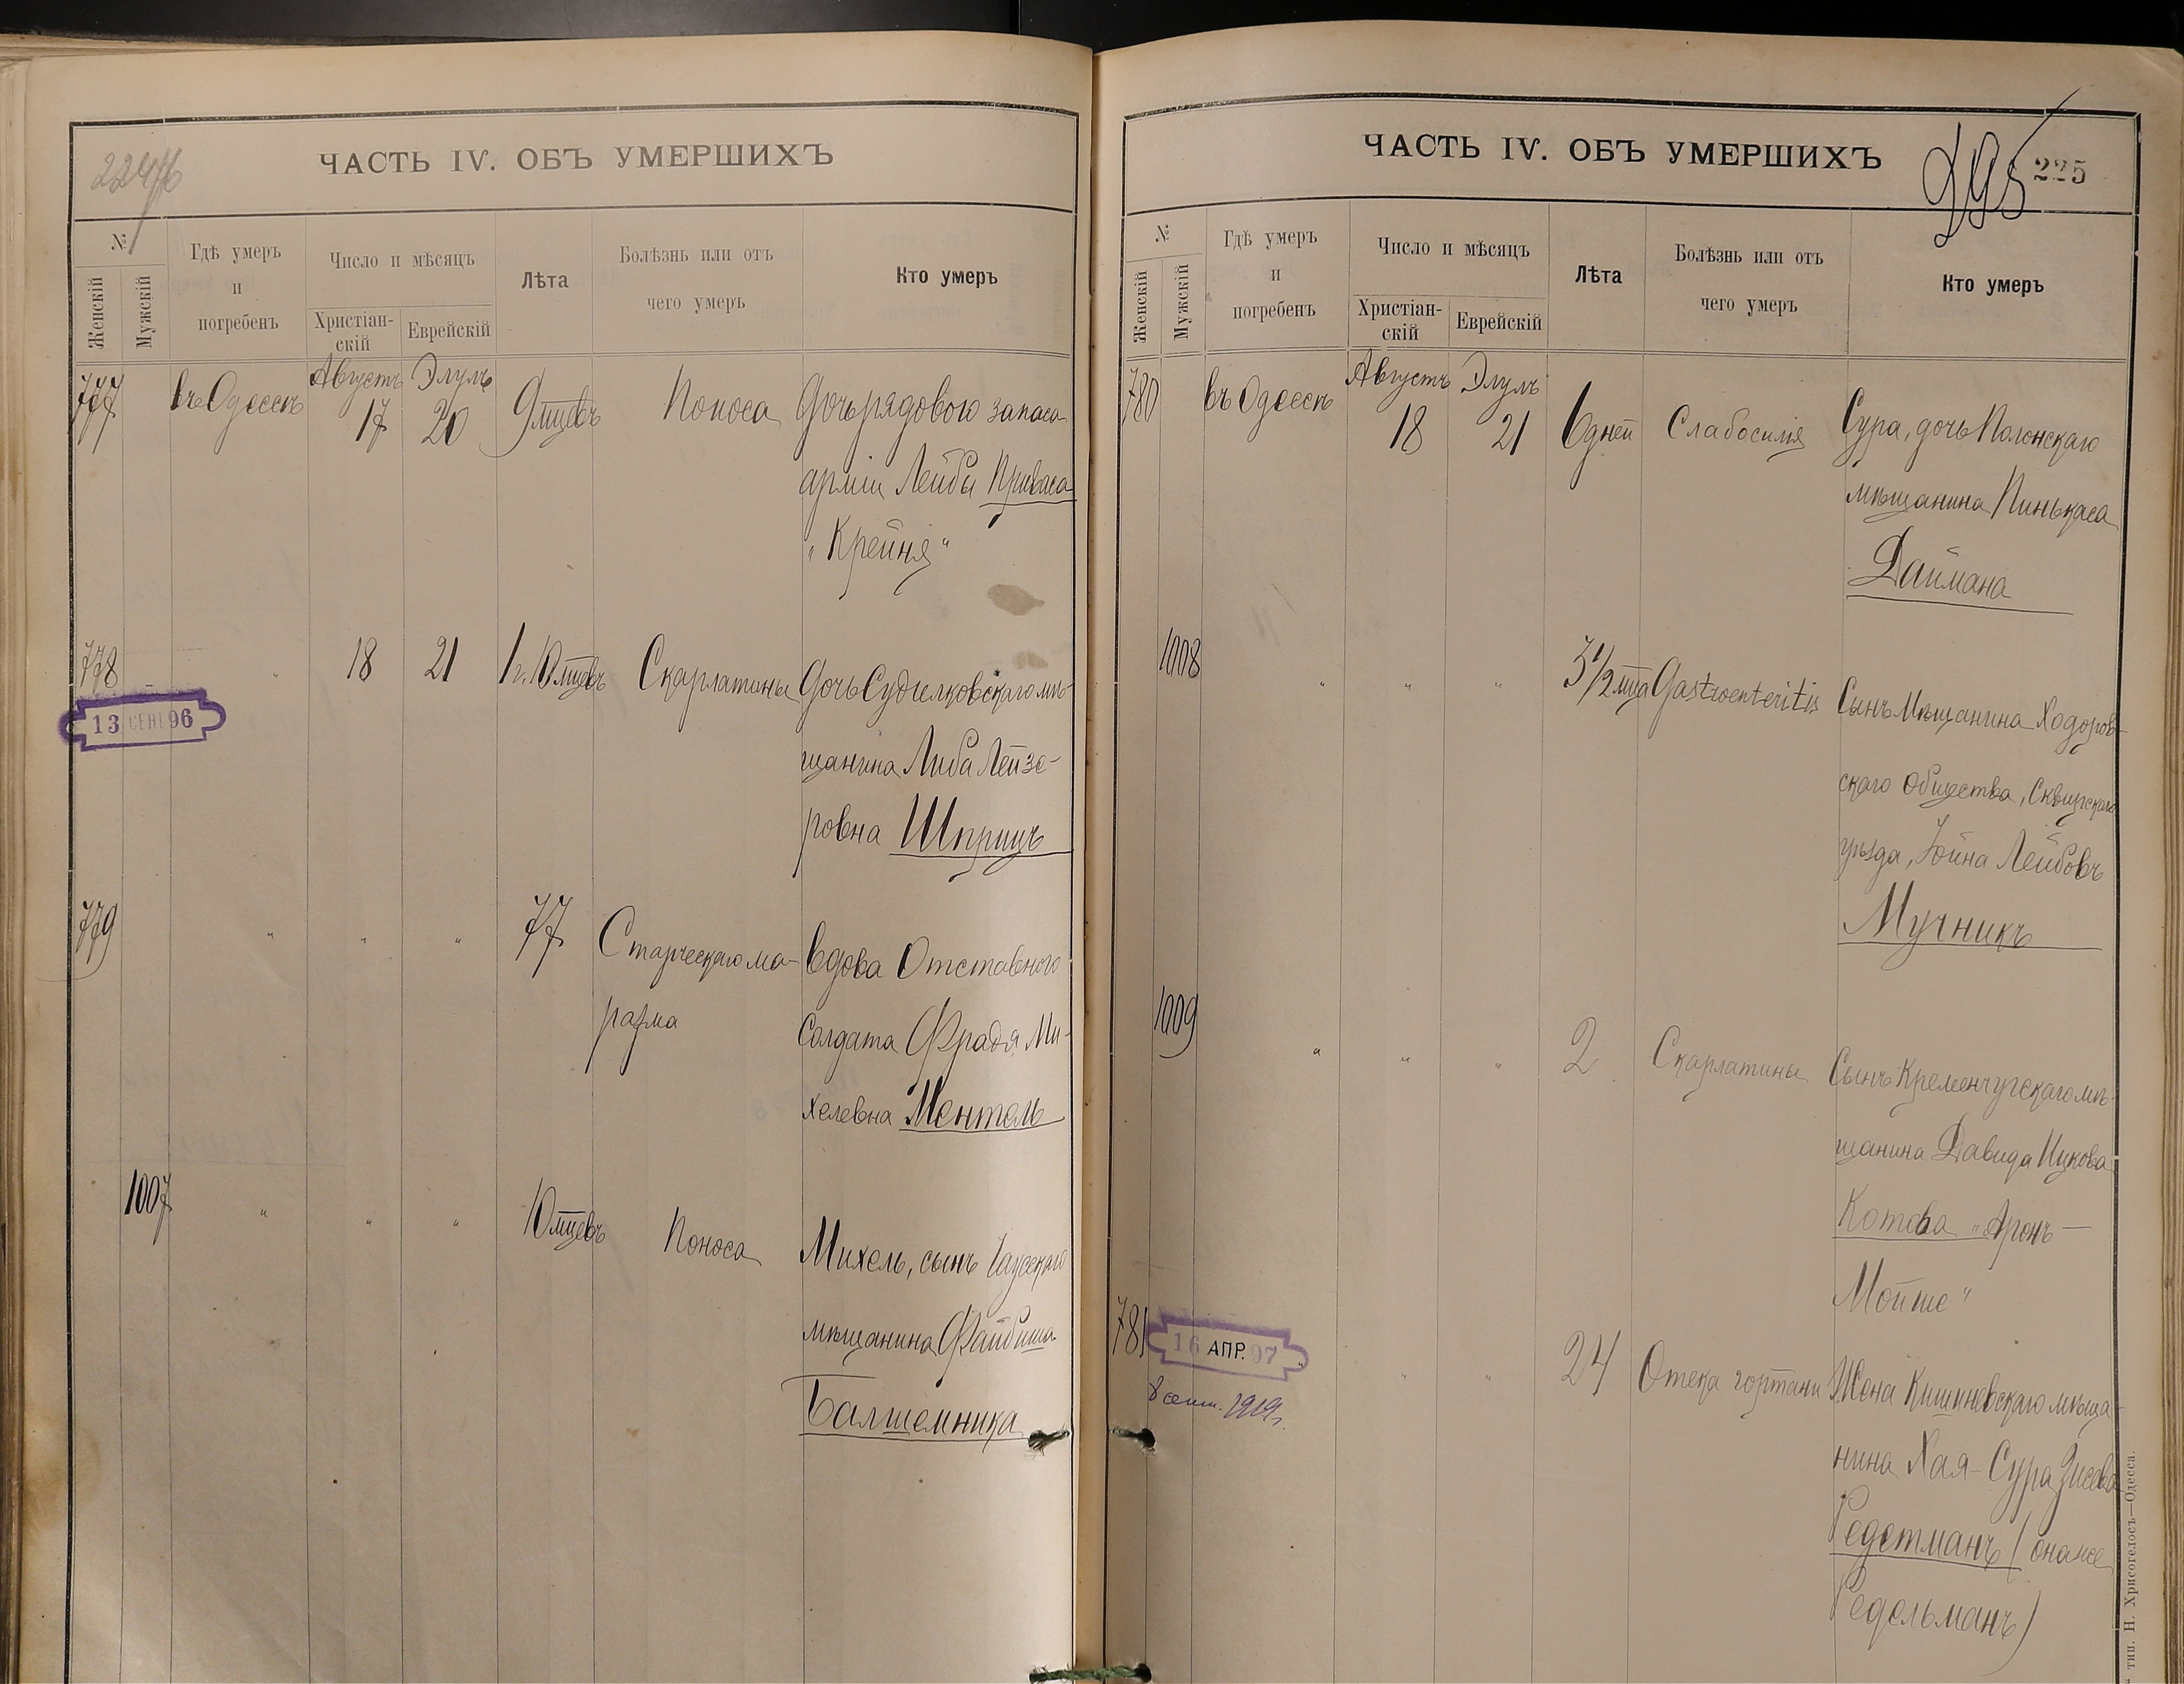 ЧАСТЬ IV. ОБЪ УМЕРШИХЪ
№
Женскій
Мужскій
Гдѣ умеръ
и
погребенъ
Число и мѣсяцъ
Христіан-
скій
Еврейскій
Лѣта
Болѣзнь или отъ
чего умеръ
Кто умеръ
777 въ Одессѣ Августъ 17 Элулъ 20 9 мцевъ Поноса Дочь рядового запаса
арміи Лейбы Приваса
„Крейня“
778 „ 18 21 1 г. 10 мцевъ Скарлатины Дочь Судилковскаго мѣ-
13 СЕН 96
щанина Либа Лейзе-
ровна Шприцъ
779 „ „ „ 77 Старческаго ма- Вдова Отставного
разма Солдата Фрадя Ми-
хелевна Ментель
1007 „ „ „ 10 мцевъ Поноса Михель, сынъ Чаусскаго
мѣщанина Файбиша
Балшемника
ЧАСТЬ IV. ОБЪ УМЕРШИХЪ
225
№
Женскій
Мужскій
Гдѣ умеръ
и
погребенъ
Число и мѣсяцъ
Христіан-
скій
Еврейскій
Лѣта
Болѣзнь или отъ
чего умеръ
Кто умеръ
780 въ Одессѣ Августъ 18 Элулъ 21 6 дней Слабосилія Сура, дочь Полонскаго
мѣщанина Пинькаса
Даймана
1008 „ „ „ 3 1/2 мца Gastroenteritis Сынъ Мѣщанина Ходоров-
скаго Общества, Сквирскаго
уѣзда, Іойна Лейбовъ
Мучникъ
1009 „ „ „ 2 Скарлатины Сынъ Кременчугскаго мѣ-
щанина Давида Ицкова
Котова „Аронъ-
Мойше“
781 „ „ „ 24 Отека гортани Жена Кишиневскаго мѣща-
16 АПР. 97
8 сент. 1919 г.
нина Хая-Сура Зисева
Редстманъ (она же
Редельманъ)
тип. Н. Хрисогелосъ—Одесса.